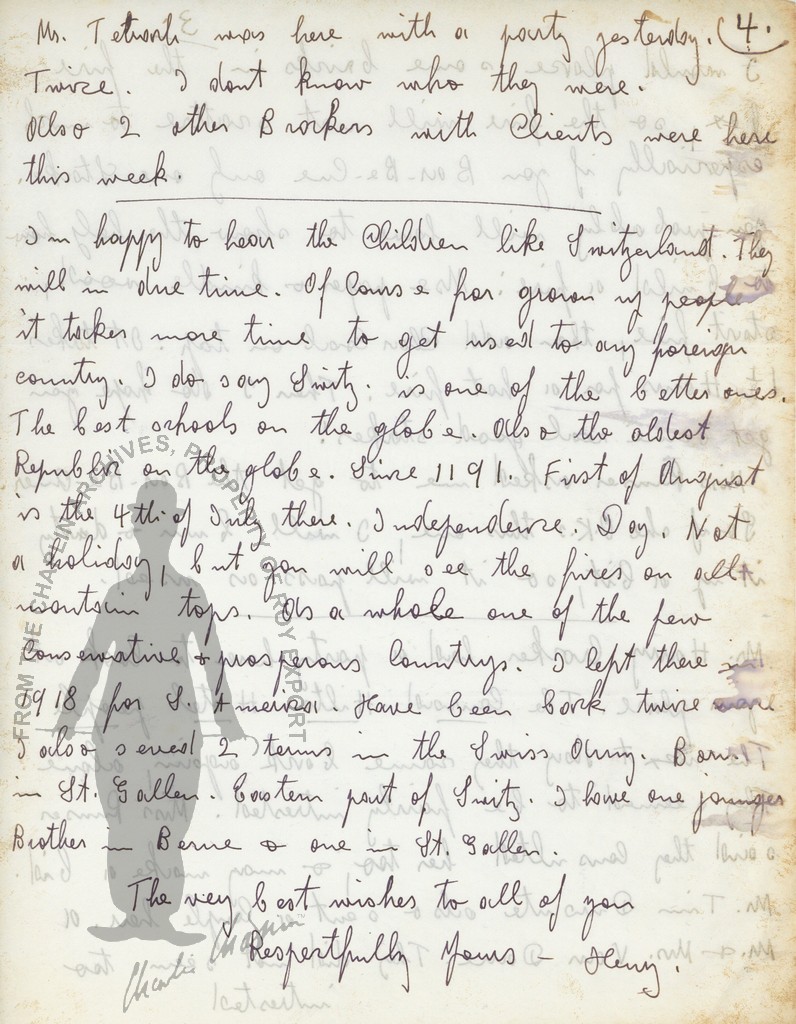 4.
Mr. Tetrark was here with a party yesterday.
Twice. I dont know who they were.
Also 2 other Brokers with Clients were here
this week.
I m happy to hear the Children like Switzerland. They
will in due time. Of Course for grown up people
it takes more time to get used to any foreign
country. I do say Switz. is one of the better ones.
The best schools on the globe. Also the oldest
Republic on the globe. Since 1191. First of August
is the 4th of July there. Independence. Day. Not
a holiday, but you will see the fires on all
mountain tops. As a whole one of the few
Conservative & prosperous Countrys. I left there in
1918 for S. America. Have been back twice
I also served 2 terms in the Swiss Army. Born.
in St. Gallen. Eastern part of Switz. I have one younger
Brother in Berne & one in St. Gallen.
The very best wishes to all of you
Respectfully Yours – Henry.
FROM THE CHAPLIN ARCHIVES, PROPERTY OF ROY EXPORT
Charlie Chaplin